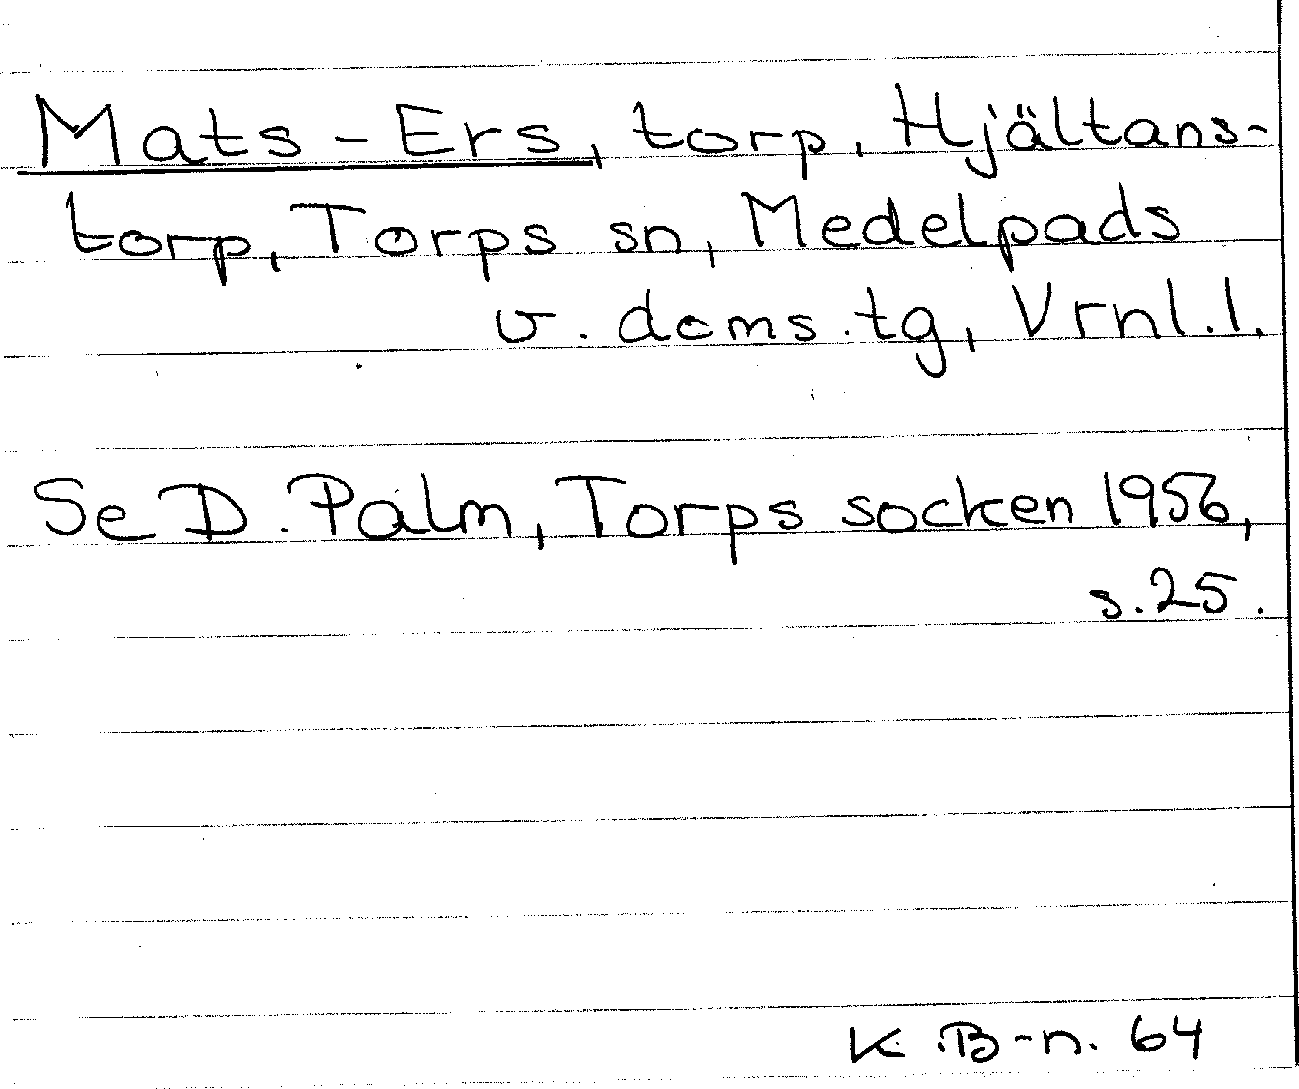 Mats-Ers, torp, Hjältans-
torp, Torps sn, Medelpads
v. doms.tg, Vrnl.l.
Se D. Palm, Torps socken 1956,
s.25.
K.B-n. 64